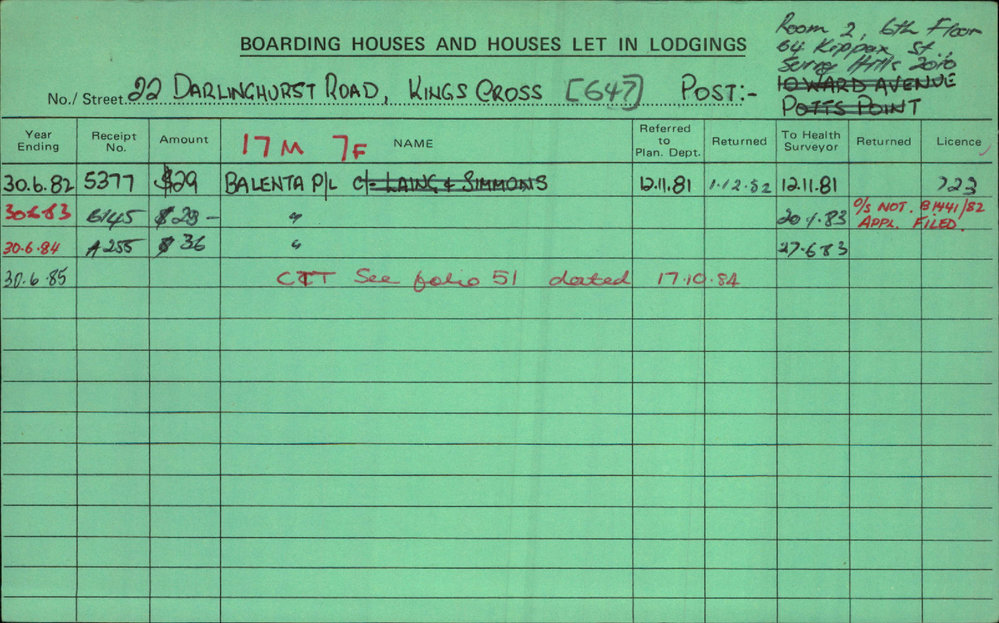 Room 2, 6th Floor
64 Kippax St,
Surry Hills 2010
BOARDING HOUSES AND HOUSES LET IN LODGINGS
No./ Street 22 DARLINGHURST ROAD, KINGS CROSS [647] POST:-
HOWARD AVENUE
POTTS POINT
Year Ending Receipt No. Amount 17M 7F NAME Referred to Plan. Dept. Returned To Health Surveyor Returned Licence
30.6.82 5377 $29 BALENTA P/L c/- LAING & SIMMONS 12.11.81 1.12.82 12.11.81 723
30.6.83 6145 $29 - " 83 O/S NOT. B1441/82
APPL. FILED.
30.6.84 A255 $36 " 27.6.83
30.6.85 See folio 51 dated 17.10.84